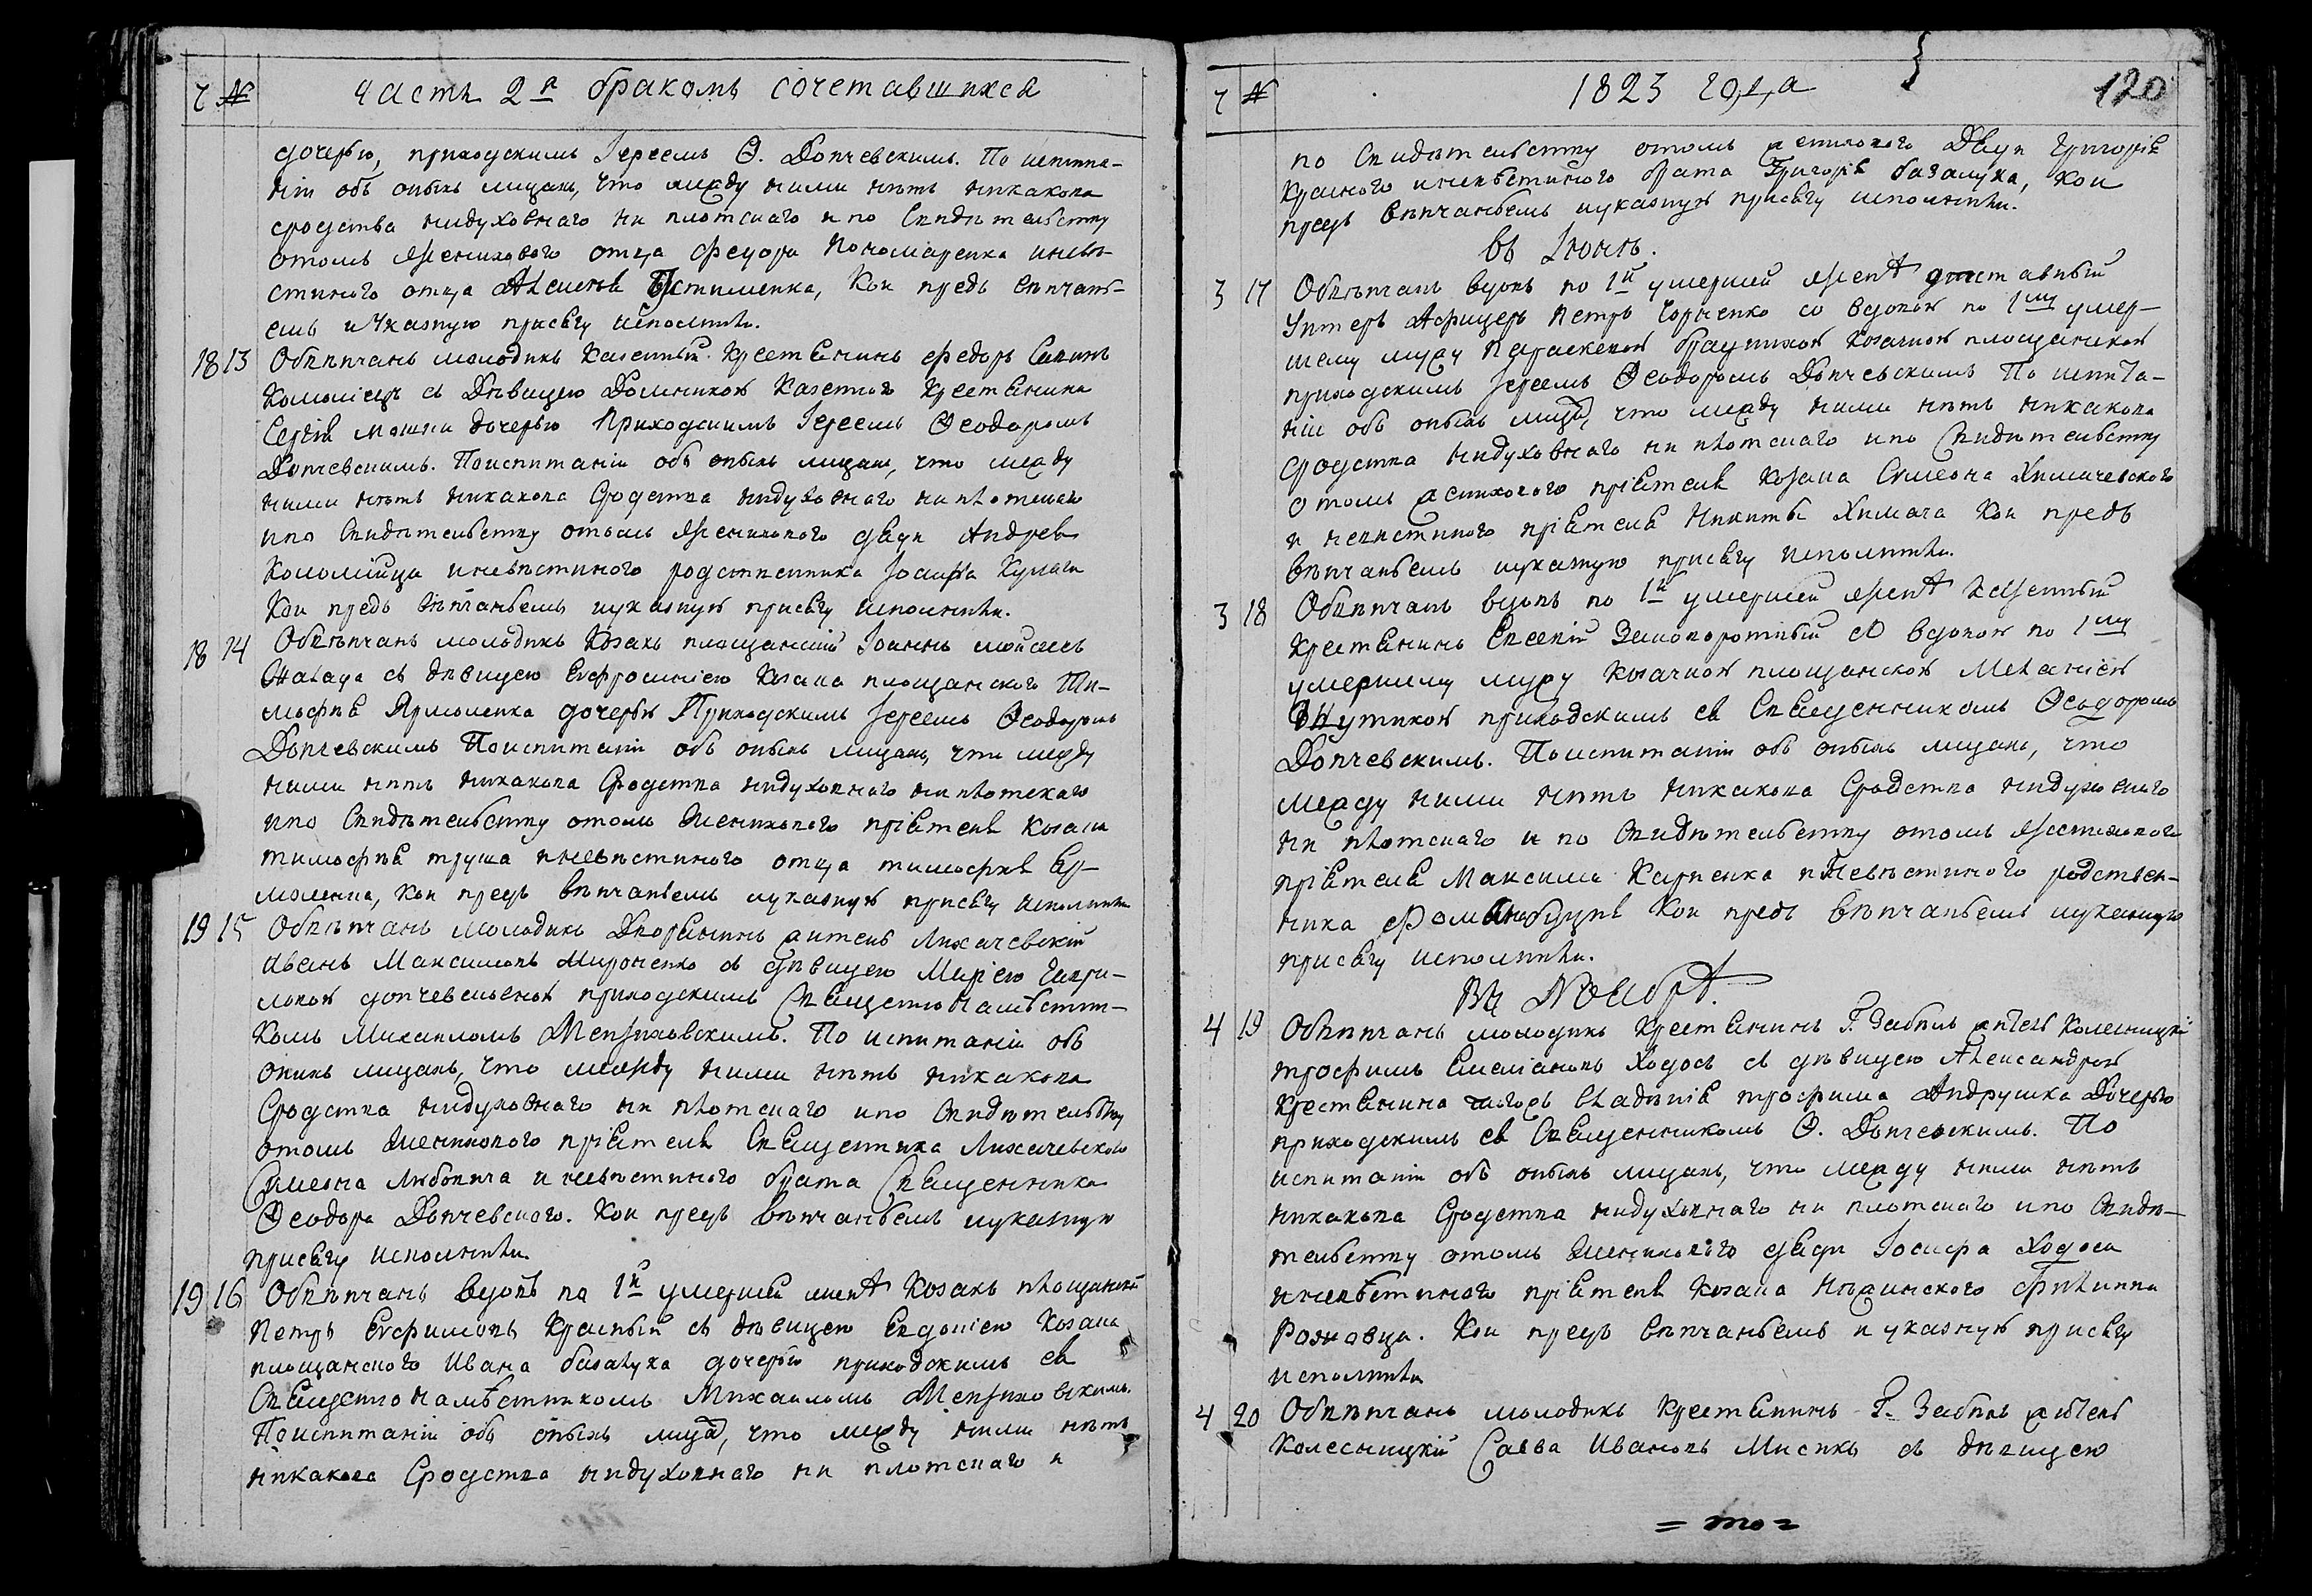 Ч №
Часть 2я браком сочетавшихся
дочерью, приходским Іереемъ Ѳ. Допчевскимъ. По испита-
ніи объ онихъ лицахъ, что между ними нѣтъ никакова
сродства нидуховнаго ни плотскаго и по Свидѣтельству
отомъ женихового отца Федора Пономаренка иневѣ-
стиного отца Алексѣя Устименка, Кои предъ вѣнчань-
емъ и Указную присягу исполнили.
18 13 Обвѣнчанъ молодикъ Казенный Крестянинъ Федоръ Савинъ
Коломіецъ съ Дѣвицею Домникою Казенного Крестянина
Сергія мошни дочерью Приходскимъ Іереемъ Ѳеодоромъ
Допчевскимъ. Поиспитаніи объ онихъ лицахъ, что между
ними нѣтъ никакова Сродства нидуховнаго ни плотскаго
ипо Свидѣтельству отомъ женихового дяди Андрея
Коломійца иневѣстиного родственника Іосифа Кулаги
Кои предъ вѣнчаньемъ иуказную присягу исполнили.
18 14 Обвѣнчанъ молодикъ Козакъ площанскій Іоаннъ мойсеевъ
Жалада съ дѣвицею Евфросиніею Козака площанского Ти-
мофѣя Ярмоленка дочерью Приходскимъ Іереемъ Ѳеодоромъ
Допчевскимъ Поиспитаніи объ онихъ лицахъ, что между
ними нѣтъ никакова Сродства нидуховнаго ни плотскаго
ипо Свидѣтельству отомъ женихового пріятеля козака
тимофѣя труша иневѣстиного отца тимофѣя Яр-
моленка, кои предъ вѣнчаньемъ иуказную присягу исполнили
19 15 Обвѣнчанъ молодикъ Дворянинъ житель Лихачевскій
Иванъ Максимовъ Мироненко съ дѣвицею Маріею Гаври-
ловою допчевскою приходскимъ Священнонамѣстни-
комъ Михаиломъ Мензиховскимъ. По испитаніи объ
онихъ лицахъ, что между ними нѣтъ никакова
Сродства нидуховнаго ни плотскаго ипо Свидѣтельству
отомъ женихового пріятеля Священника Лихачевского
Симеона Любовича и невѣстиного брата Священника
Ѳеодора Допчевского. Кои предъ вѣнчаньемъ иуказную
присягу исполнили.
19 16 Обвѣнчанъ вдовъ по 1й умершей женѣ Козакъ площанскій
Петръ Евфимовъ Красный съ дѣвицею Евдокіею Козака
площанского Ивана базалука дочерью приходскимъ
Священнонамѣстникомъ Михаиломъ Мензиховскимъ.
Поиспитаніи объ онихъ лицахъ, что между ними нѣтъ
никакова Сродства нидуховнаго ни плотскаго и
Ч №
1823 года
120
по Свидѣтельству отомъ женихового Дяди Григорія
Красного иневѣстиного брата Григорія базалука, кои
предъ вѣнчаньемъ иуказную присягу исполнили.
въ Іюнѣ.
3 17 Обвѣнчанъ вдовъ по 1й умершей женѣ отставный
Унтеръ Афицеръ Петръ Горченко со вдовою по 1му умер-
шему мужу Параскевою козачкою площанскою
приходскимъ Іереемъ Ѳеодоромъ Допчевскимъ По испита-
ніи объ онихъ лицахъ, что между ними нѣтъ никакова
Сродства нидуховнаго ни плотскаго ипо Свидѣтельству
отомъ женихового пріятеля козака Симеона Химичевского
и невѣстиного пріятеля Никиты Химача Кои предъ
вѣнчаньемъ иуказную присягу исполнили.
3 18 Обвѣнчанъ вдовъ по 1й умершей женѣ Казенный
крестянинъ Евсевій со вдовою по 1му
умершему мужу козачкою площанскою Меланіею
приходскимъ Священникомъ Ѳеодоромъ
Допчевскимъ. Поиспитаніи объ онихъ лицахъ, что
между ними нѣтъ никакова Сродства нидуховнаго
ни плотскаго и по Свидѣтельству отомъ женихового
пріятеля Максима Карпенка и невѣстиного родствен-
ника Кои предъ вѣнчаньемъ иуказную
присягу исполнили.
Въ Ноябрѣ.
4 19 Обвѣнчанъ молодикъ Крестянинъ Г. Забѣлъ житель Колесницкій
трофимъ Емеліановъ Ходосъ съ дѣвицею Александрою
Крестянина тогожъ владѣнія трофима Андрушка Дочерью
приходскимъ Священникомъ Ѳ. Допчевскимъ. По
испитаніи объ онихъ лицахъ, что между ними нѣтъ
никакова Сродства нидуховнаго ни плотскаго ипо Свидѣ-
тельству отомъ женихового дяди Іосифа Ходоса
иневѣстиного пріятеля Козака Нѣжинского Филиппа
Розновца. Кои предъ вѣнчаньемъ иуказную присягу
исполнили
4 20 Обвѣнчанъ молодикъ Крестянинъ Г. Забѣлъ житель
Колесницкій Савва Ивановъ Мисикъ съ дѣвицею
= то =